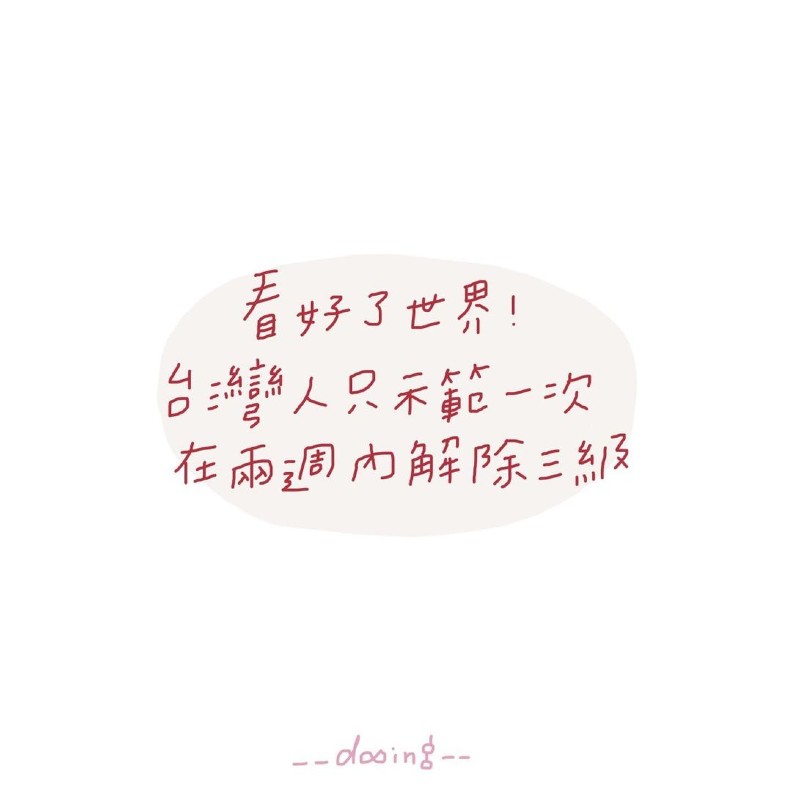 看好了世界!
台灣人只示範一次
在兩週內解除三級
__dosing__